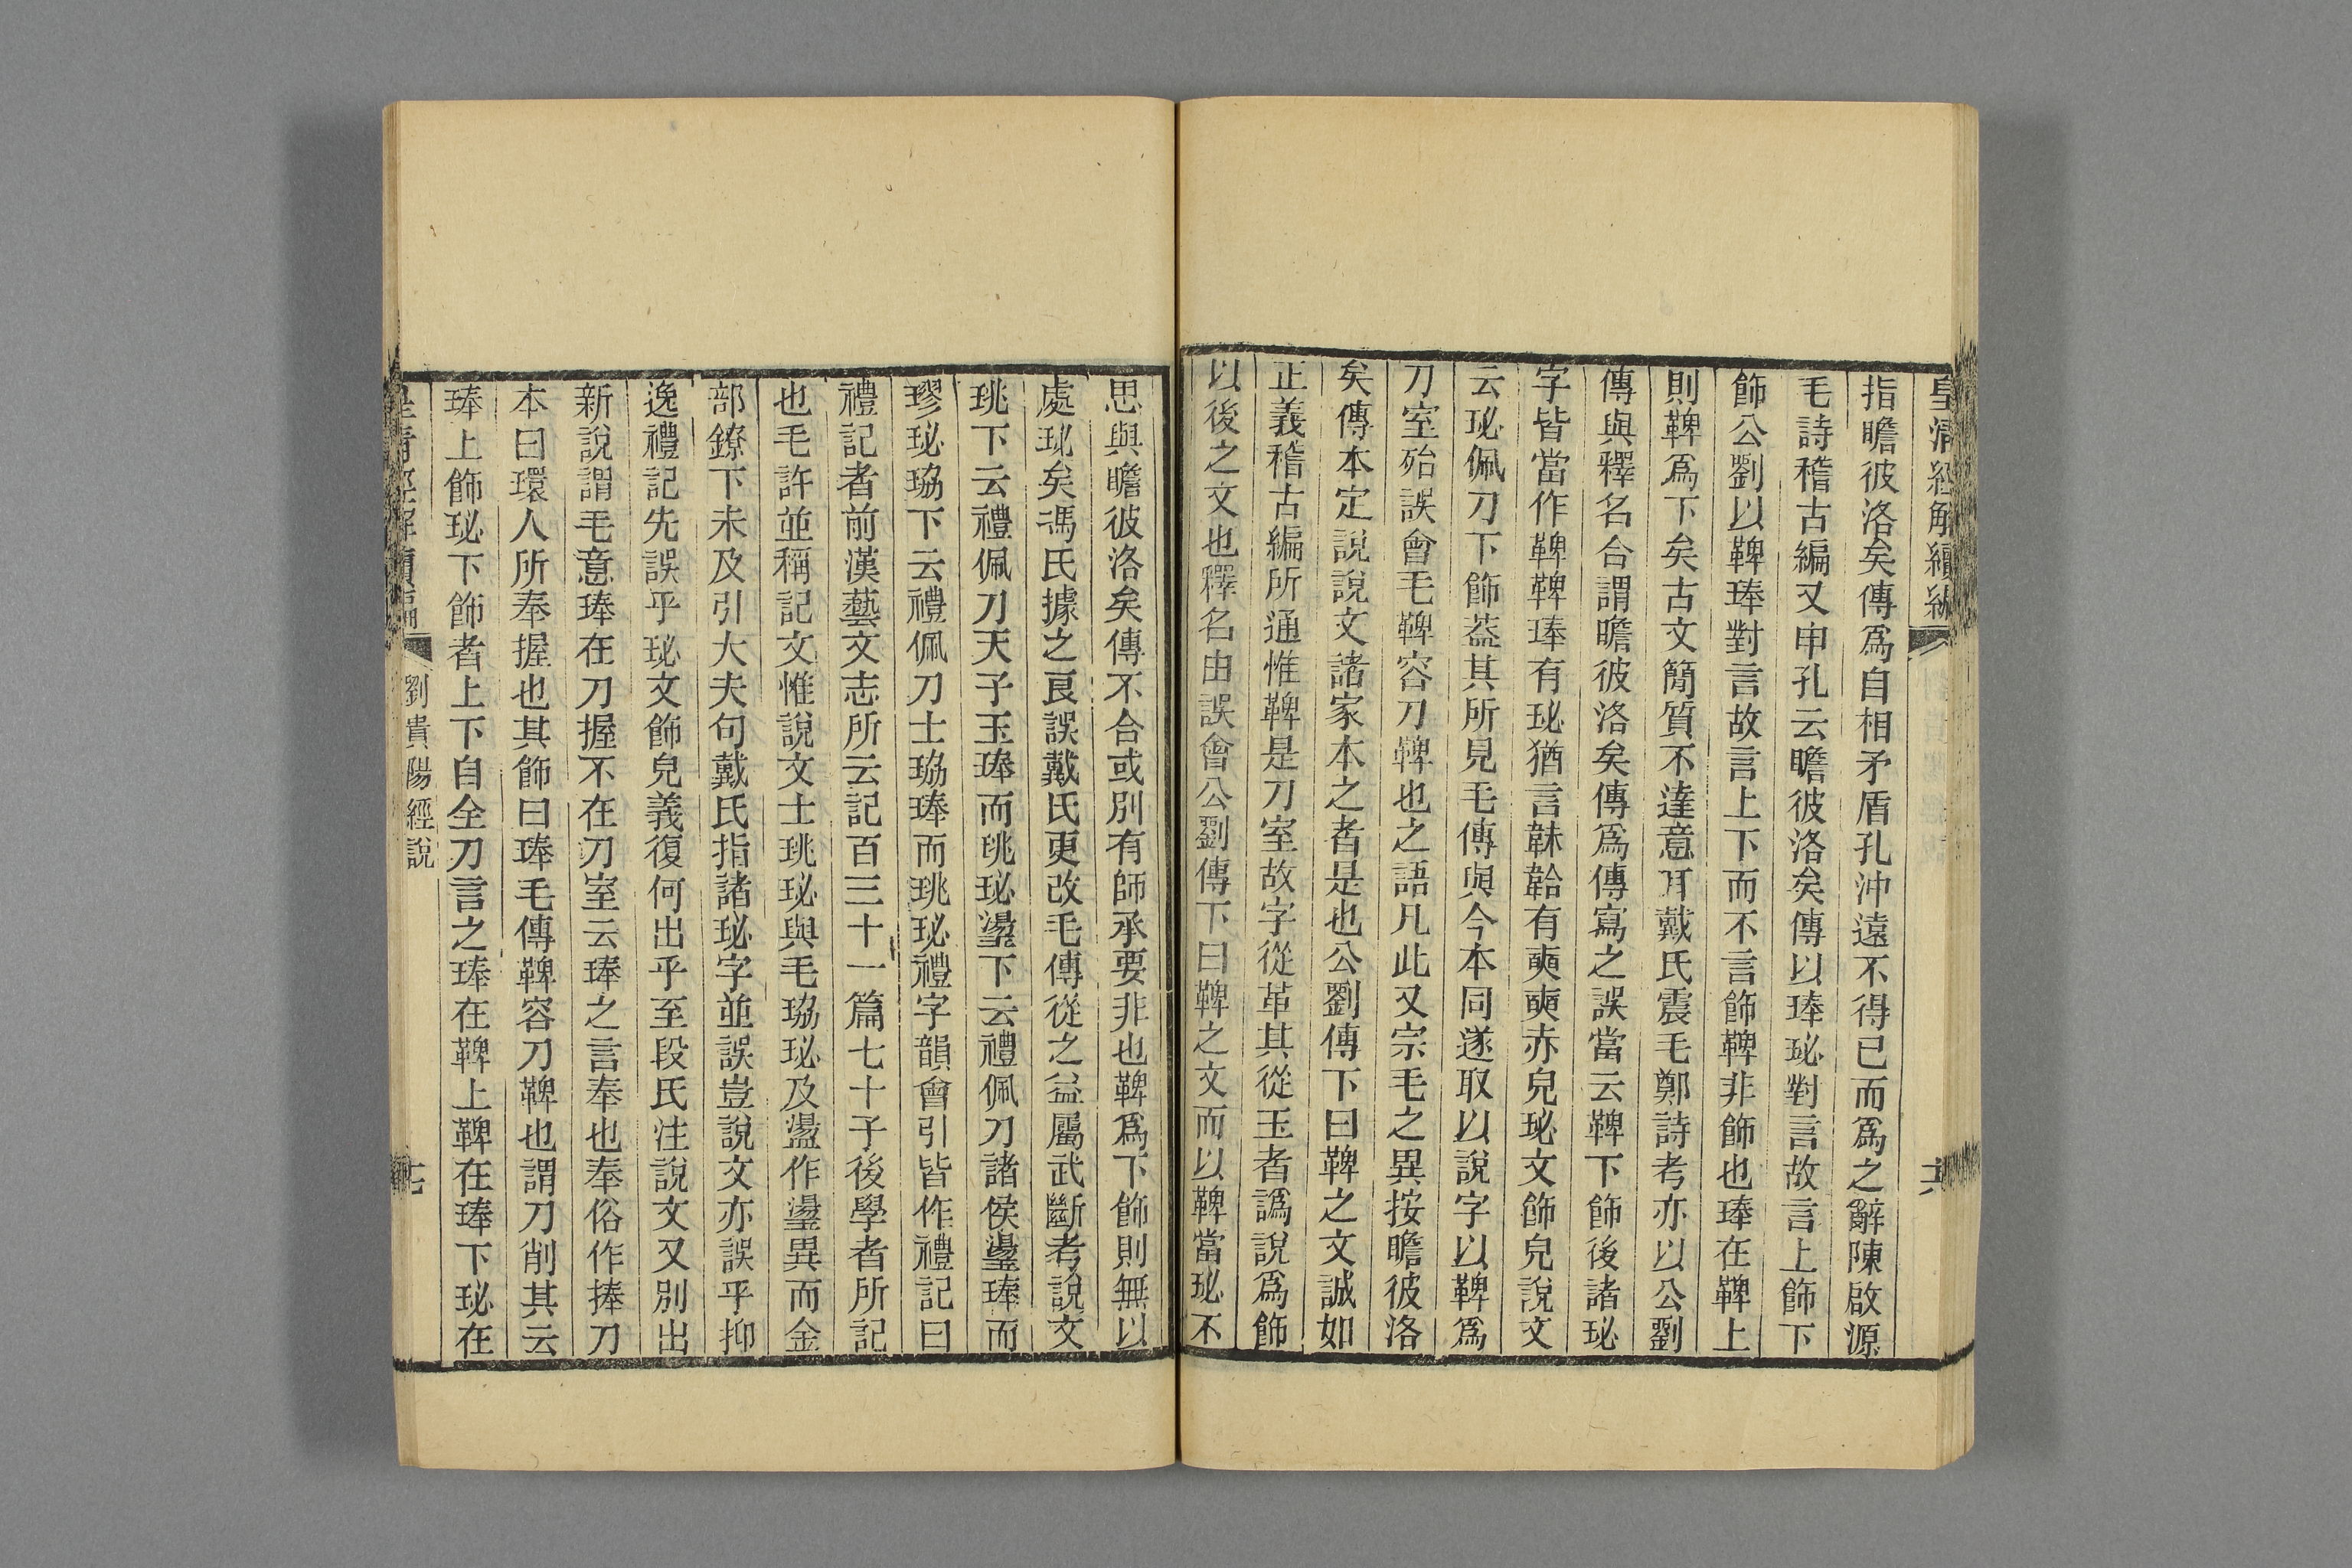 皇清經解續編
六
指瞻彼洛矣傳爲自相矛盾孔沖遠不得已而爲之辭陳啟源
毛詩稽古編又申孔云瞻彼洛矣傳以琫珌對言故言上飾下
飾公劉以鞞琫對言故言上下而不言飾鞞非飾也琫在鞞上
則鞞爲下矣古文簡質不達意耳戴氏震毛鄭詩考亦以公劉
傳與釋名合謂瞻彼洛矣傳爲傳寫之誤當云鞞下飾後諸珌
字皆當作鞞鞞琫有珌猶言韎韐有奭奭赤皃珌文飾皃說文
云珌佩刀下飾葢其所見毛傳與今本同遂取以說字以鞞爲
刀室殆誤會毛鞞容刀鞞也之語凡此又宗毛之異按瞻彼洛
矣傳本定說說文諸家本之者是也公劉傳下曰鞞之文誠如
正義稽古編所通惟鞞是刀室故字從革其從玉者譌說爲飾
以後之文也釋名由誤會公劉傳下曰鞞之文而以鞞當珌不
思與瞻彼洛矣傳不合或別有師承要非也鞞爲下飾則無以
處珌矣馮氏據之良誤戴氏更改毛傳從之益屬武斷考說文
珧下云禮佩刀天子玉琫而珧珌璗下云禮佩刀諸侯璗琫而
璆珌珕下云禮佩刀士珕琫而珧珌禮字韻會引皆作禮記曰
禮記者前漢藝文志所云記百三十一篇七十子後學者所記
也毛許並稱記文惟說文士珧珌與毛珕珌及盪作璗異而金
部鐐下未及引大夫句戴氏指諸珌字並誤豈說文亦誤乎抑
逸禮記先誤乎珌文飾皃義復何出乎至段氏注說文又別出
新說謂毛意琫在刀握不在刀室云琫之言奉也奉俗作捧刀
本曰環人所奉握也其飾曰琫毛傳鞞容刀鞞也謂刀削其云
琫上飾珌下飾者上下自全刀言之琫在鞞上鞞在琫下珌在
皇清經解續編
劉貴陽經說
七